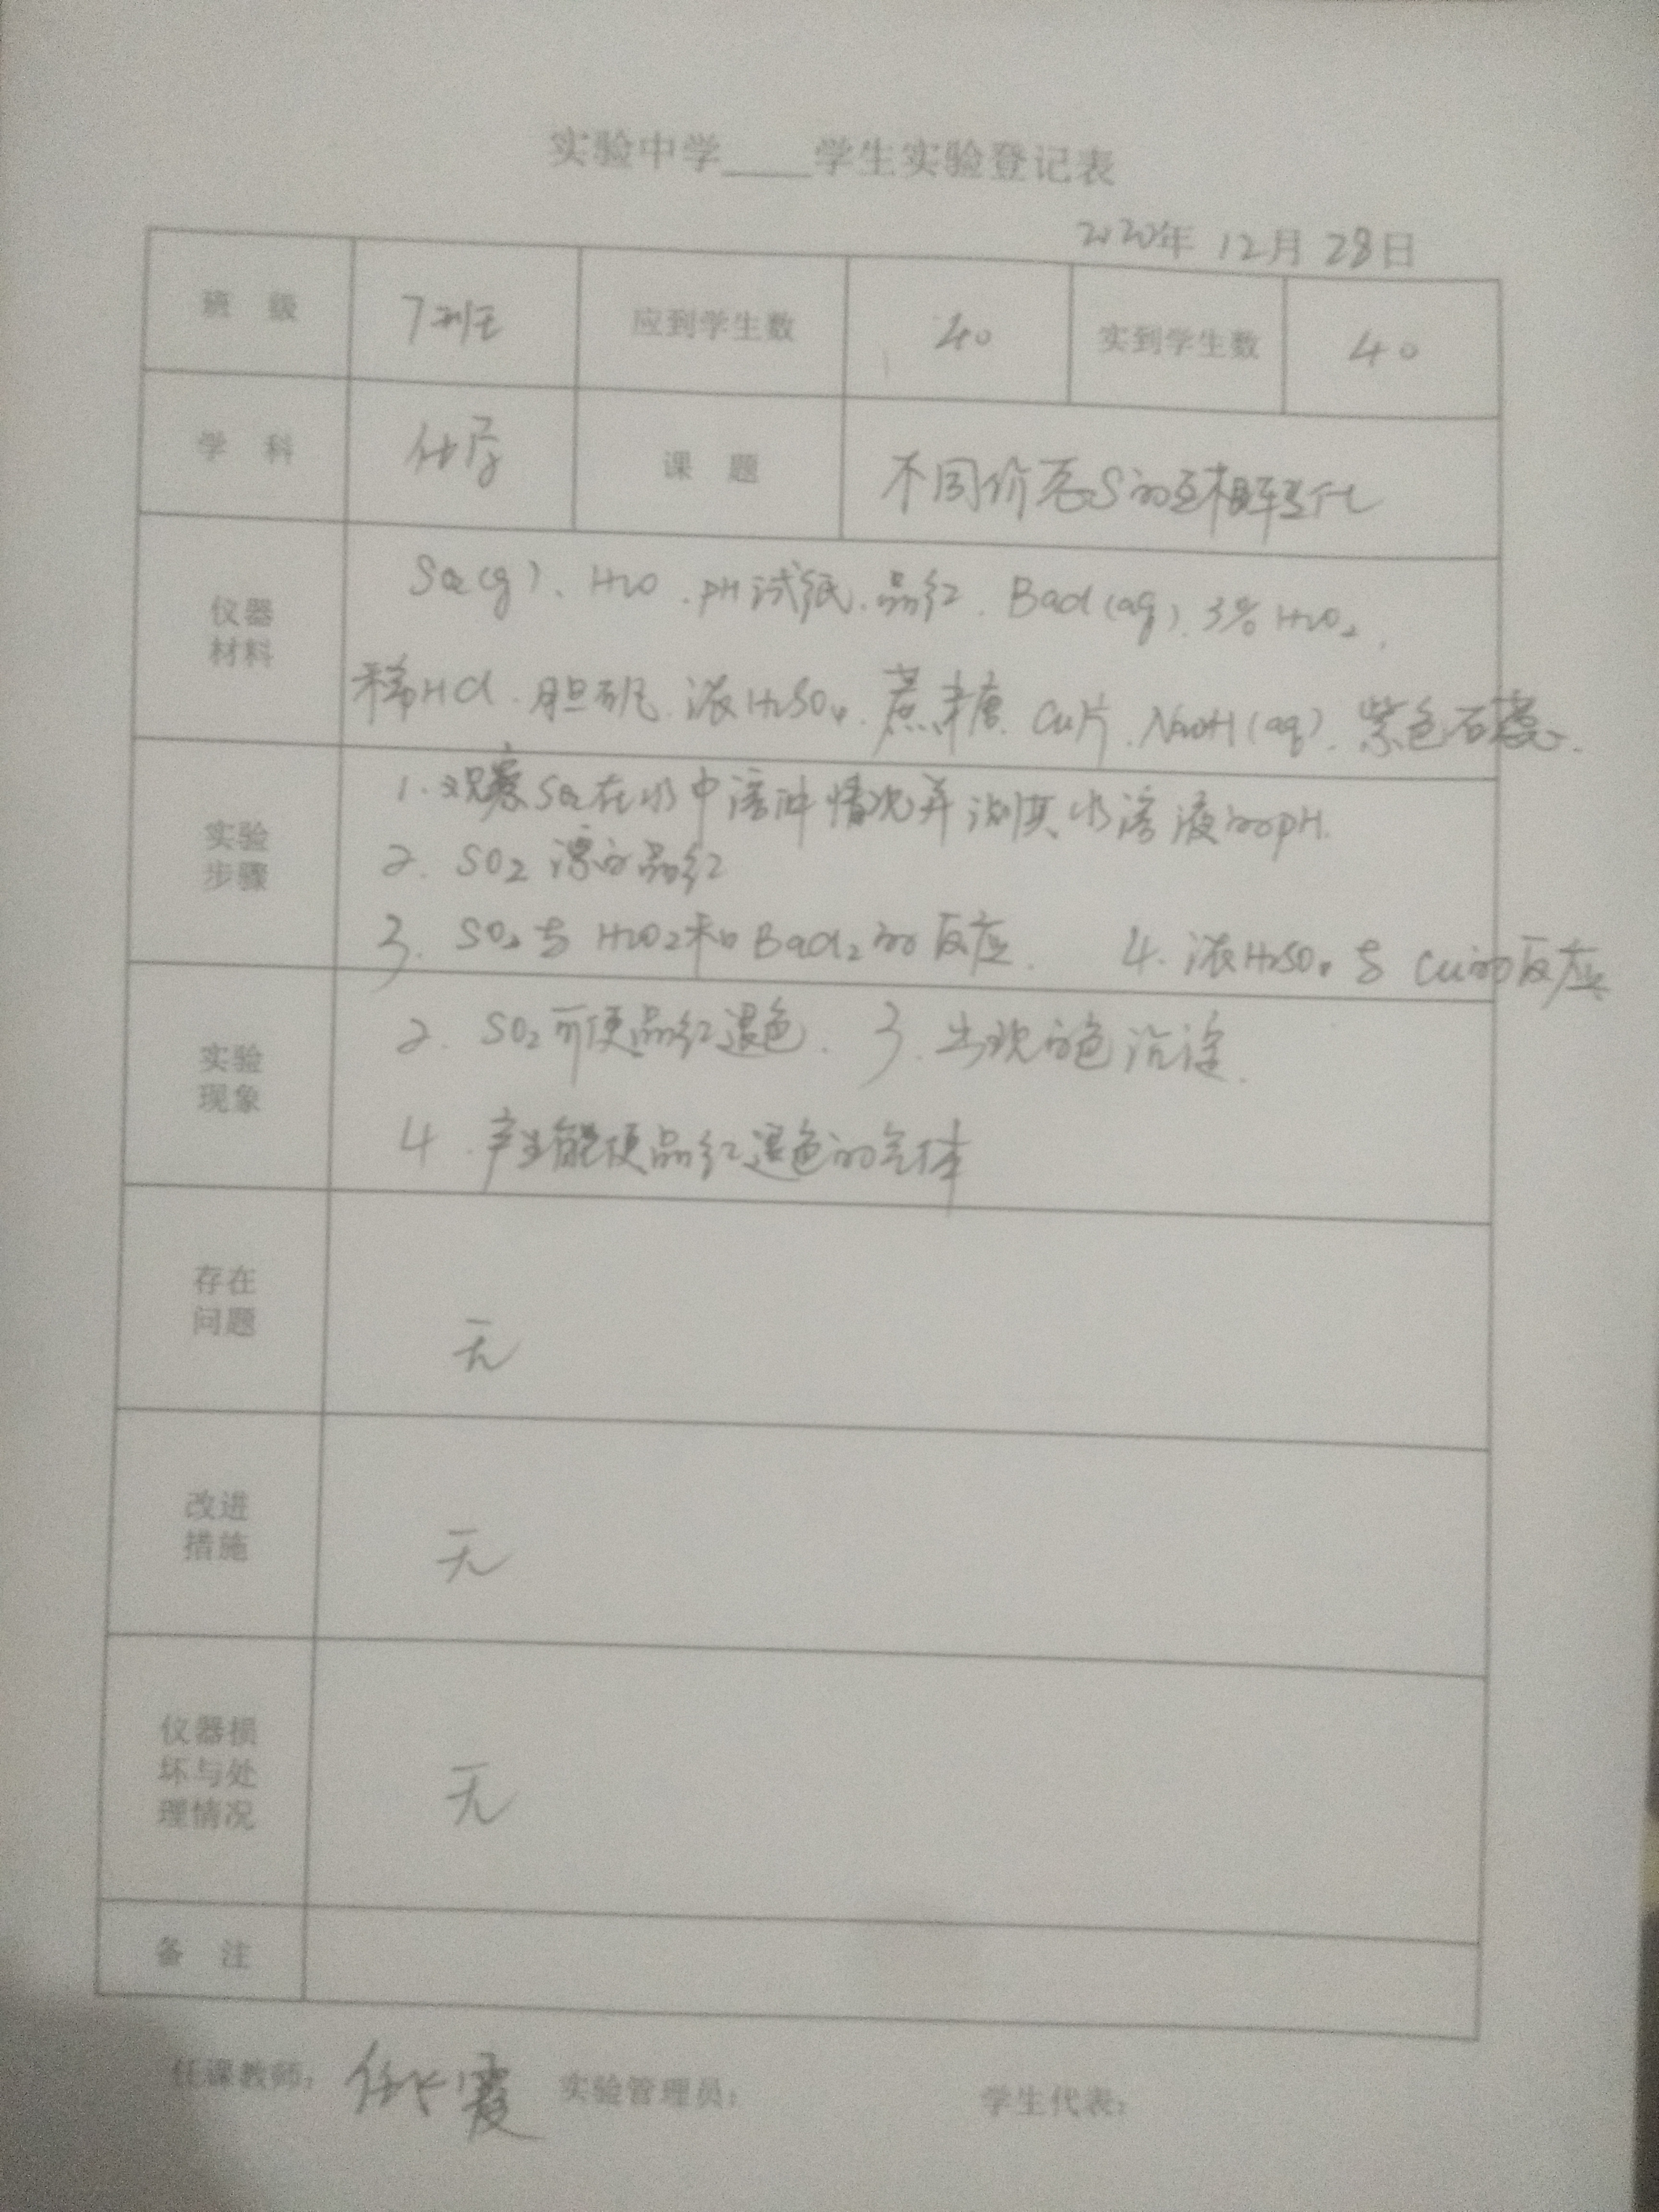 实验中学____学生实验登记表
2020年 12月 28日
班 级 7班 应到学生数 40 实到学生数 40
学 科 化学 课 题 不同价态S的互相转化
仪器材料
SO2(g)、H2O、pH试纸、品红、BaCl(aq)、3% H2O2、
稀HCl、胆矾、浓H2SO4、蔗糖、Cu片、NaOH(aq)、紫色石蕊、
实验步骤
1. 观察SO2在水中溶解情况并测其水溶液的pH.
2. SO2 漂白品红
3. SO2与 H2O2和BaCl2的反应. 4. 浓H2SO4与 Cu的反应
实验现象
2. SO2可使品红退色. 3. 出现白色沉淀.
4. 产生能使品红退色的气体
存在问题
无
改进措施
无
仪器损坏与处理情况
无
备 注
任课教师: 任长霞 实验管理员: 学生代表: